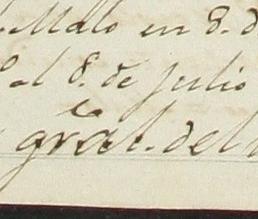 Malo en 8. d
al 8. de Julio
gral. del